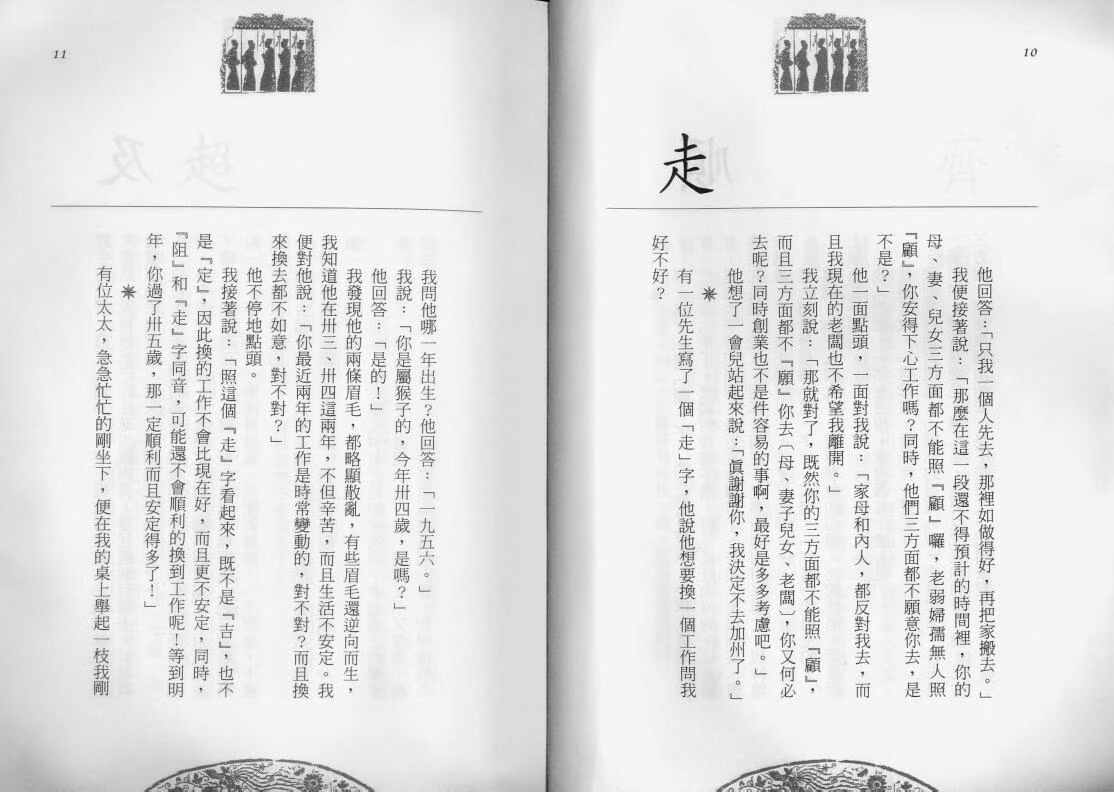 10
走
他回答：「只我一個人先去，那裡如做得好，再把家搬去。」
我便接著說：「那麼在這一段還不得預計的時間裡，你的
母、妻、兒女三方面都不能照『顧』囉，老弱婦孺無人照
『顧』，你安得下心工作嗎？同時，他們三方面都不願意你去，是
不是？」
他一面點頭，一面對我說：「家母和內人，都反對我去，而
且我現在的老闆也不希望我離開。」
我立刻說：「那就對了，既然你的三方面都不能照『顧』，
而且三方面都不『願』你去〔母、妻子兒女、老闆〕，你又何必
去呢？同時創業也不是件容易的事啊，最好是多多考慮吧。」
他想了一會兒站起來說：「眞謝謝你，我決定不去加州了。」
有一位先生寫了一個「走」字，他說他想要換一個工作問我
好不好？
11
我問他哪一年出生？他回答：「一九五六。」
我說：「你是屬猴子的，今年卅四歲，是嗎？」
他回答：「是的！」
我發現他的兩條眉毛，都略顯散亂，有些眉毛還逆向而生，
我知道他在卅三、卅四這兩年，不但辛苦，而且生活不安定。我
便對他說：「你最近兩年的工作是時常變動的，對不對？而且換
來換去都不如意，對不對？」
他不停地點頭。
我接著說：「照這個『走』字看起來，既不是『吉』，也不
是『定』，因此換的工作不會比現在好，而且更不安定，同時，
『阻』和『走』字同音，可能還不會順利的換到工作呢！等到明
年，你過了卅五歲，那一定順利而且安定得多了！」
有位太太，急急忙忙的剛坐下，便在我的桌上舉起一枝我剛